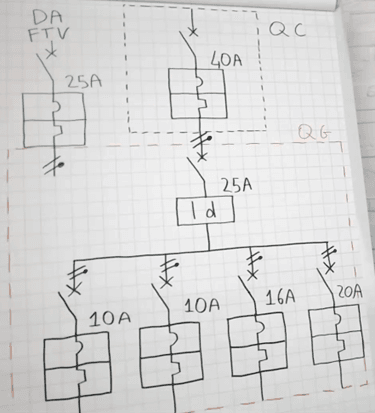 DA
FTV
25A
QC
40A
QG
25A
Id
10A
10A
16A
20A